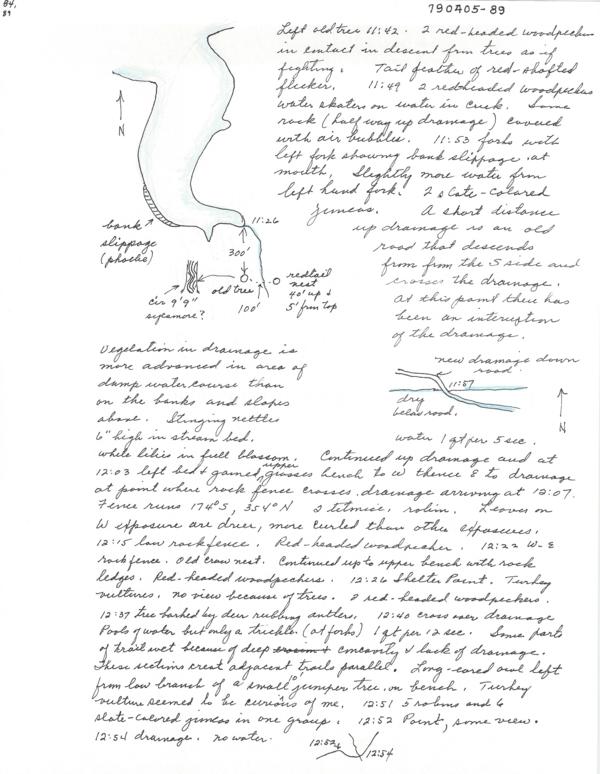 84,
89
790405-89
Left old tree 11:42. 2 red-headed woodpeckers
in contact in descent from trees as if
fighting. Tail feather of red-shafted
flicker. 11:49 2 redheaded woodpeckers
water skaters on water in creek. Some
rock (half way up drainage) covered
with air bubbles. 11:53 forks with
left fork showing bank slippage at
mouth. Slightly more water from
left hand fork. 2 slate-colored
juncos. A short distance
up drainage is an old
road that descends
from from the S side and
crosses the drainage.
At this point there has
been an interruption
of the drainage.
N
bank
slippage
(phoebe)
11:26
300'
old tree
100'
redtail
nest
40' up &
5' from top
cir 9'9"
sycamore?
new drainage down
road.
11:57
dry
below road.
N
water 1 qt per 5 sec.
Vegetation in drainage is
more advanced in area of
damp water course than
on the banks and slopes
above. Stinging nettles
6" high in stream bed.
While lilies in full blossom. Continued up drainage and at
12:03 left bed & gained upper grasses bench to W thence E to drainage
at point where rock fence crosses drainage arriving at 12:07.
Fence runs 174°S, 354°N 2 titmice, robin. Leaves on
W exposure are drier, more curled than other exposures.
12:15 low rock fence. Red-headed woodpecker. 12:22 W-E
rock fence. Old crow nest. Continued up to upper bench with rock
ledges. Red-headed woodpeckers. 12:26 Shelter Point. Turkey
vultures. no view because of trees. 2 red-headed woodpeckers.
12:37 tree barked by deer rubbing antlers. 12:40 cross over drainage
Pools of water but only a trickle. (at forks) 1 qt per 12 sec. Some parts
of trail wet because of deep concavity & lack of drainage.
These sections creat adjacent trails parallel. Long-eared owl left
from low branch of a small 10' juniper tree on bench. Turkey
vulture seemed to be curious of me. 12:51 5 robins and 6
slate-colored juncos in one group. 12:52 Point, some view.
12:54 drainage. no water.
12:52
12:54